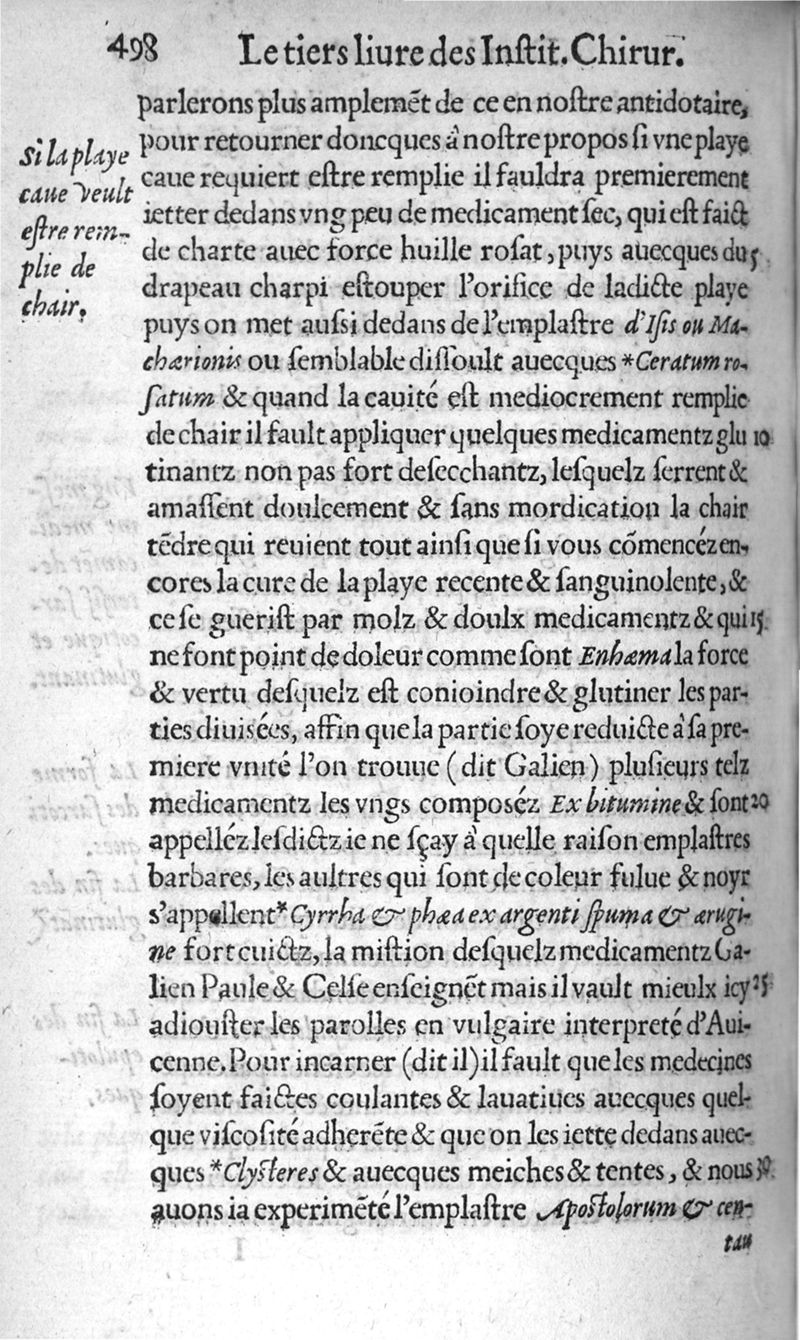 498 Le tiers liure des Inſtit. Chirur.
parlerons plus amplemẽt de ce en noſtre antidotaire,
pour retourner doncques à noſtre propos ſi vne playe
caue requiert eſtre remplie il fauldra premierement
ietter dedans vng peu de medicament ſec, qui eſt faict
de charte auec force huille roſat, puys auecques du 5
drapeau charpi eſtouper l'orifice de ladicte playe
puys on met auſsi dedans de l'emplaſtre d'Iſis ou Ma-
chærionis ou ſemblable diſſoult auecques *Ceratum ro-
ſatum & quand la cauité eſt mediocrement remplie
de chair il fault appliquer quelques medicamentz glu 10
tinantz non pas fort deſecchantz, leſquelz ſerrent &
amaſſent doulcement & ſans mordication la chair
tẽdre qui reuient tout ainſi que ſi vous cõmencéz en-
cores la cure de la playe recente & ſanguinolente, &
ce ſe gueriſt par molz & doulx medicamentz & qui 15
ne font point de doleur comme ſont Enhæma la force
& vertu deſquelz eſt conioindre & glutiner les par-
ties diuisées, affin que la partie ſoye reduicte à ſa pre-
miere vnité l'on trouue ( dit Galien ) pluſieurs telz
medicamentz les vngs composéz Ex bitumine & ſont 20
appelléz leſdictz ie ne ſçay à quelle raiſon emplaſtres
barbares, les aultres qui ſont de coleur fulue & noyr
s'appellent* Cyrrha & phæa ex argenti ſpuma & ærugi-
ne fort cuictz, la miſtion deſquelz medicamentz Ga-
lien Paule & Celſe enſeignẽt mais il vault mieulx icy 25
adiouſter les parolles en vulgaire interpreté d'Aui-
cenne. Pour incarner (dit il) il fault que les medecines
ſoyent faictes coulantes & lauatiues auecques quel-
que viſcoſité adherẽte & que on les iette dedans auec-
ques *Clyſteres & auecques meiches & tentes, & nous 30
auons ia experimẽté l'emplaſtre Apoſtolorum & cen-
tau
Si la playe
caue veult
eſtre rem-
plie de
chair.